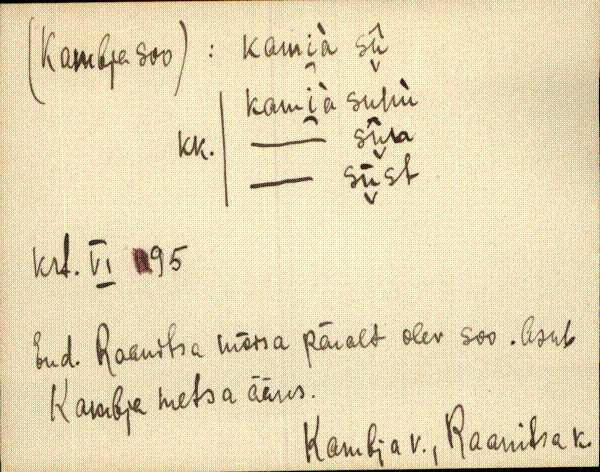 (Kambja soo) : kami̯à sǖ
kami̯à suhù
kk. — sǖn
— süst
krt. VI 95
End. Raanitsa mõisa päralt olev soo. Asub
Kambja metsa ääres.
Kambja v., Raanitsa k.